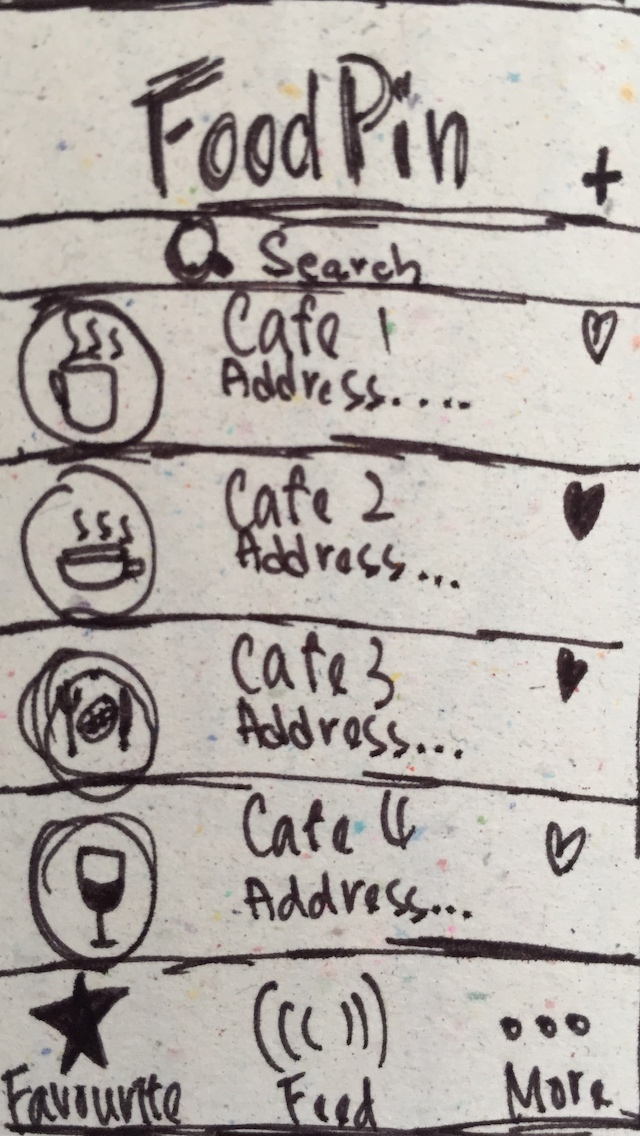 FoodPin
+
Search
Cafe 1
Address.....
Cafe 2
Address...
Cafe 3
Address...
Cafe 4
Address...
Favourite Feed More